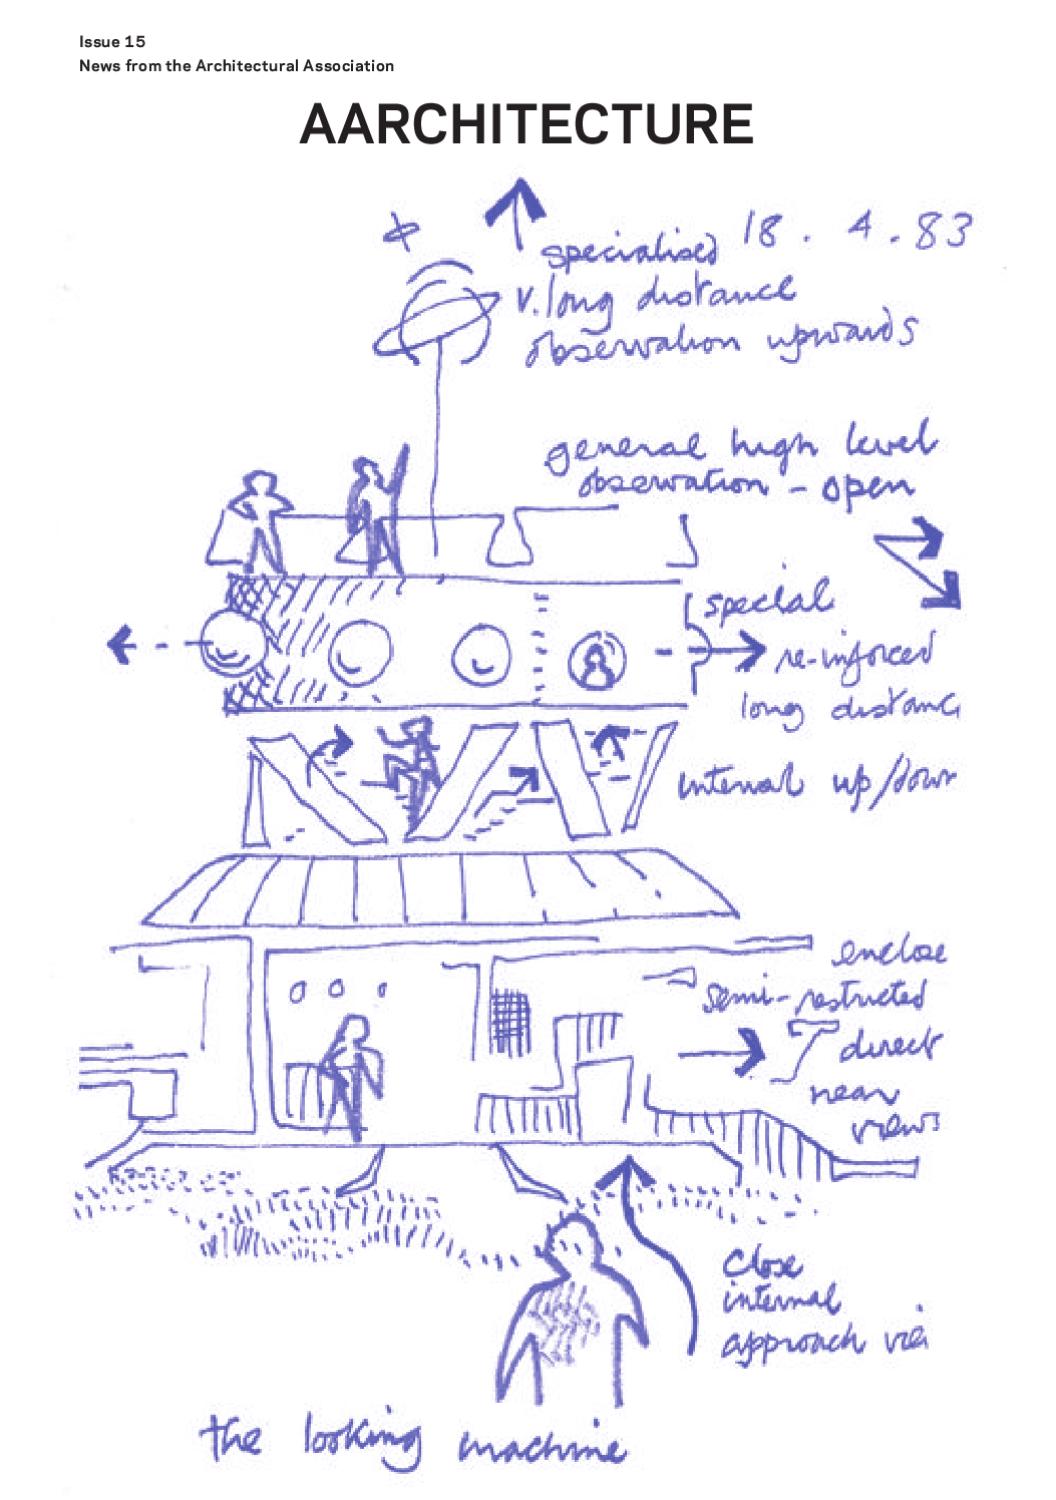 Issue 15
News from the Architectural Association
AARCHITECTURE
18 . 4 . 83
specialised
v. long distance
observation upwards
general high level
observation - open
special
re-inforced
long distance
internal up/down
enclose
semi-restricted
direct
near
views
close
internal
approach via
the looking machine